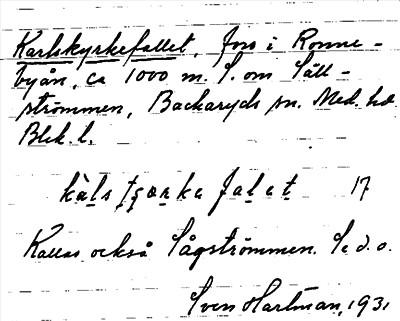 Karlskyrkefallet, fors i Ronne-
byån, ca 1000 m. S. om Säll-
strömmen, Backaryds sn. Med. hd.
Blek. l.
17
Kallas också Sågströmmen. Se d.o.
Sven Hartman, 1931